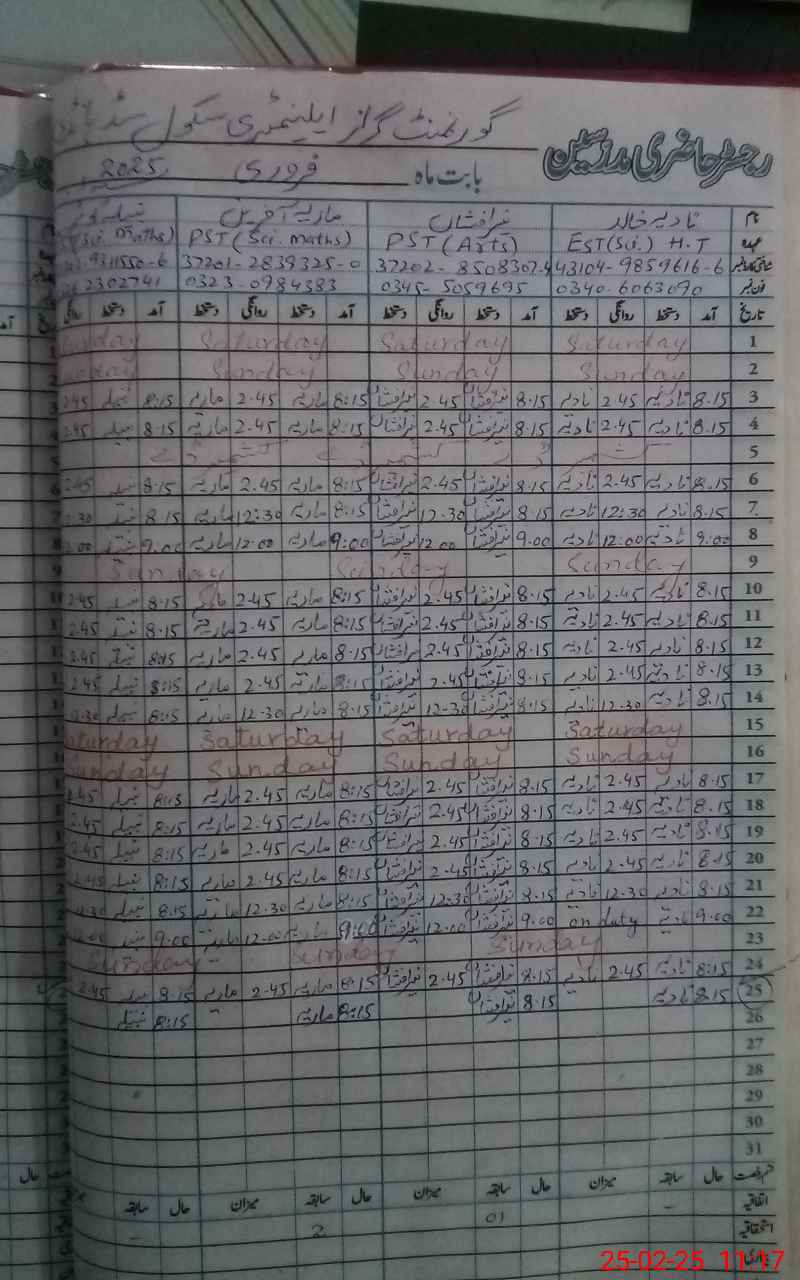 رجسٹر حاضری مدرسین گورنمنٹ گرلز ایلیمنٹری سکول
بابت ماہ فروری 2025
نام نادیہ خالد نورافشاں ماریہ آفرین نبیلہ
عہدہ EST(Sci.) H.T PST (Arts) PST (Sci. maths) (Sci. Maths)
43104-9859616-6 37202-8508307-4 37201-2839325-0 9311550-6
فون نمبر 0340-6063090 0345-5059695 0323-0984383 2302741
تاریخ آمد دستخط روانگی دستخط آمد دستخط روانگی دستخط آمد دستخط روانگی دستخط آمد دستخط روانگی
1 Saturday Saturday Saturday
2 Sunday Sunday Sunday
3 8.15 نادیہ 2.45 نادیہ 8.15 نورافشاں 2.45 نورافشاں 8:15 ماریہ 2.45 ماریہ 8:15 نبیلہ 2.45
4 8.15 نادیہ 2.45 نادیہ 8.15 نورافشاں 2.45 نورافشاں 8:15 ماریہ 2.45 ماریہ 8.15 نبیلہ 2.45
5
6 8.15 نادیہ 2.45 نادیہ 8.15 نورافشاں 2.45 نورافشاں 8:15 ماریہ 2.45 ماریہ 8.15 نبیلہ 2.45
7 8.15 نادیہ 12:30 نادیہ 8.15 نورافشاں 12.30 نورافشاں 8:15 ماریہ 12:30 ماریہ 8.15 نبیلہ
8 9:00 نادیہ 12:00 نادیہ 9.00 نورافشاں 12.00 نورافشاں 9:00 ماریہ 12.00 ماریہ 9.00 نبیلہ
9 Sunday Sunday Sunday
10 8.15 نادیہ 2.45 نادیہ 8.15 نورافشاں 2.45 نورافشاں 8:15 ماریہ 2.45 ماریہ 8.15 نبیلہ 2.45
11 8.15 نادیہ 2.45 نادیہ 8.15 نورافشاں 2.45 نورافشاں 8:15 ماریہ 2.45 ماریہ 8.15 نبیلہ 2.45
12 8.15 نادیہ 2.45 نادیہ 8.15 نورافشاں 2.45 نورافشاں 8.15 ماریہ 2.45 ماریہ 8:15 نبیلہ 2.45
13 8.15 نادیہ 2.45 نادیہ 8.15 نورافشاں 2.45 نورافشاں 8:15 ماریہ 2.45 ماریہ 8:15 نبیلہ 2.45
14 8.15 نادیہ 12.30 نادیہ 8.15 نورافشاں 12.30 نورافشاں 8.15 ماریہ 12.30 ماریہ 8:15 نبیلہ
15 Saturday Saturday Saturday Saturday
16 Sunday Sunday Sunday Sunday
17 8.15 نادیہ 2.45 نادیہ 8.15 نورافشاں 2.45 نورافشاں 8:15 ماریہ 2.45 ماریہ 8:15 نبیلہ 2.45
18 8.15 نادیہ 2.45 نادیہ 8.15 نورافشاں 2.45 نورافشاں 8:15 ماریہ 2.45 ماریہ 8:15 نبیلہ 2.45
19 8.15 نادیہ 2.45 نادیہ 8.15 نورافشاں 2.45 نورافشاں 8:15 ماریہ 2.45 ماریہ 8:15 نبیلہ 2.45
20 8.15 نادیہ 2.45 نادیہ 8.15 نورافشاں 2.45 نورافشاں 8:15 ماریہ 2.45 ماریہ 8:15 نبیلہ 2.45
21 8.15 نادیہ 12.30 نادیہ 8.15 نورافشاں 12:30 نورافشاں 8:15 ماریہ 12.30 ماریہ 8.15 نبیلہ
22 9.00 نادیہ on duty 9.00 نورافشاں 12.00 نورافشاں 9:00 ماریہ 12.00 ماریہ 9.00 نبیلہ
23 Sunday Sunday Sunday
24 8:15 نادیہ 2.45 نادیہ 8.15 نورافشاں 2.45 نورافشاں 8:15 ماریہ 2.45 ماریہ 8.15 نبیلہ 2.45
25 8.15 نادیہ 8.15 نورافشاں 8:15 ماریہ 8:15 نبیلہ
26
27
28
29
30
31
حال سابقہ میزان حال سابقہ میزان حال سابقہ میزان حال سابقہ
اتفاقیہ - 01
استحقاقیہ 2 -
25-02-25 11:17